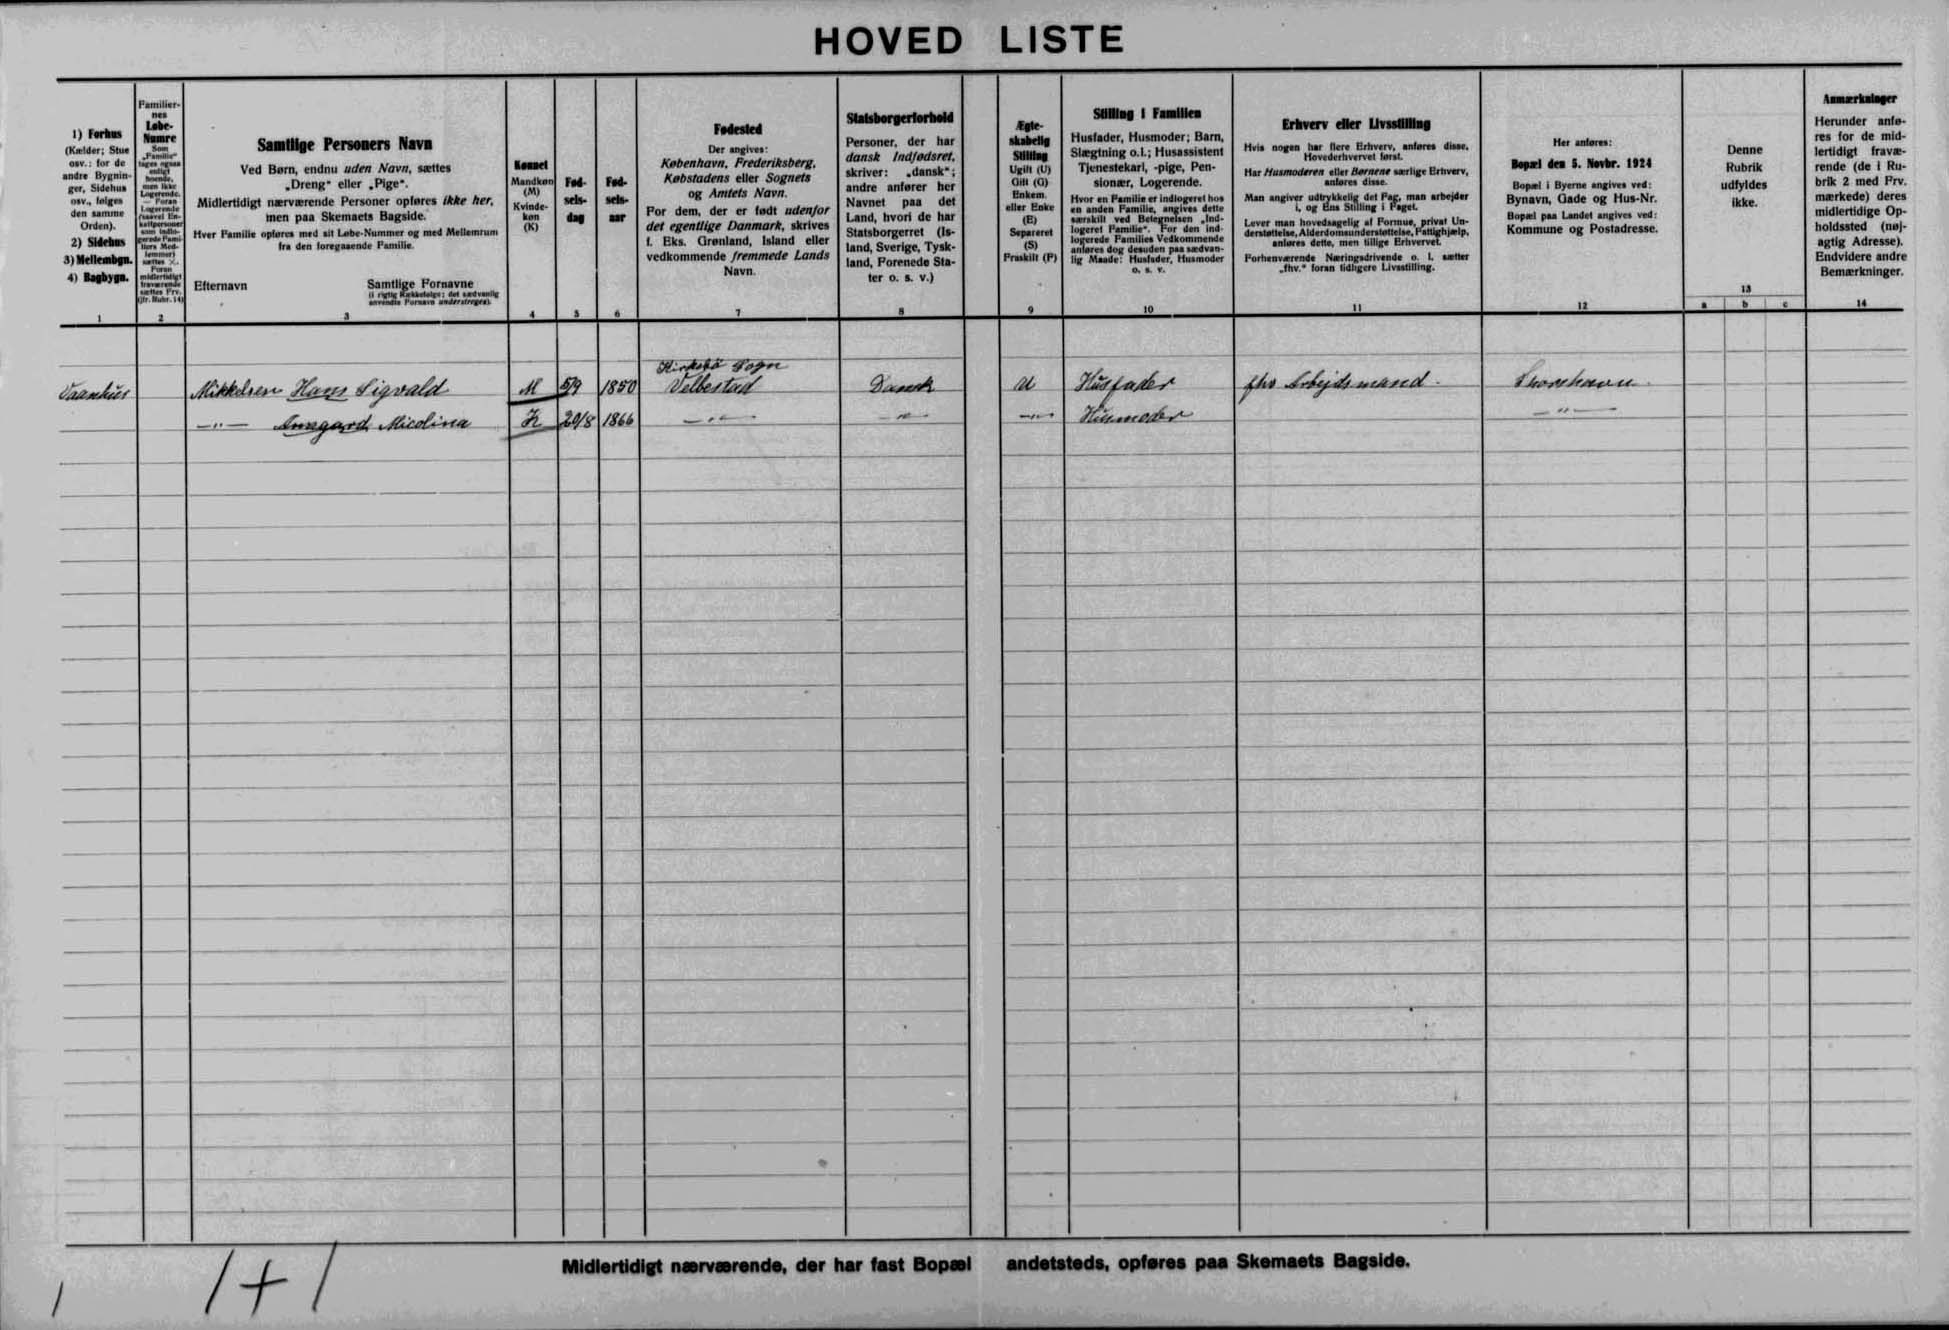 HOVED LISTE
1) Forhus
(Kælder; Stue
osv.: for de
andre Bygnin-
ger, Sidehus
osv., følges
den samme
Orden).
2) Sidehus
3) Mellembgn.
4) Bagbygn.
1
Familier-
nes
Løbe-
Numre
Som
„Familie“
tages ogsaa
enligt
boende,
men ikke
Logerende.
— Foran
Logerende
(saavel En-
keltpersoner
som indlo-
gerede Fami-
liers Med-
lemmer)
sættes ⁒.
Foran
midlertidigt
fraværende
sættes Frv.
(jfr. Rubr. 14)
2
Samtlige Personers Navn
Ved Børn, endnu uden Navn, sættes
„Dreng“ eller „Pige“.
Midlertidigt nærværende Personer opføres ikke her,
men paa Skemaets Bagside.
Hver Familie opføres med sit Løbe-Nummer og med Mellemrum
fra den foregaaende Familie.
Efternavn Samtlige Fornavne
(i rigtig Rækkefølge; det sædvanlig
anvendte Fornavn understreges).
3
Kønnet
Mandkøn
(M)
Kvinde-
køn
(K)
4
Fød-
sels-
dag
5
Fød-
sels-
aar
6
Fødested
Der angives:
København, Frederiksberg,
Købstadens eller Sognets
og Amtets Navn.
For dem, der er født udenfor
det egentlige Danmark, skrives
f. Eks. Grønland, Island eller
vedkommende fremmede Lands
Navn.
7
Statsborgerforhold
Personer, der har
dansk Indfødsret,
skriver: „dansk“;
andre anfører her
Navnet paa det
Land, hvori de har
Statsborgerret (Is-
land, Sverige, Tysk-
land, Forenede Sta-
ter o. s. v.)
8
Ægte-
skabelig
Stilling
Ugift (U)
Gift (G)
Enkem.
eller Enke
(E)
Separeret
(S)
Fraskilt (F)
9
Stilling i Familien
Husfader, Husmoder; Barn,
Slægtning o.l.; Husassistent
Tjenestekarl, -pige, Pen-
sionær, Logerende.
Hvor en Familie er indlogeret hos
en anden Familie, angives dette
særskilt ved Betegnelsen „Ind-
logeret Familie“. For den ind-
logerede Families Vedkommende
anføres dog desuden paa sædvan-
lig Maade: Husfader, Husmoder
o. s. v.
10
Erhverv eller Livsstilling
Hvis nogen har flere Erhverv, anføres disse,
Hovederhvervet først.
Har Husmoderen eller Børnene særlige Erhverv,
anføres disse.
Man angiver udtrykkelig det Fag, man arbejder
i, og Ens Stilling i Faget.
Lever man hovedsagelig af Formue, privat Un-
derstøttelse, Alderdomsunderstøttelse, Fattighjælp,
anføres dette, men tillige Erhvervet.
Forhenværende Næringsdrivende o. l. sætter
„fhv.“ foran tidligere Livsstilling.
11
Her anføres:
Bopæl den 5. Novbr. 1924
Bopæl i Byerne angives ved:
Bynavn, Gade og Hus-Nr.
Bopæl paa Landet angives ved:
Kommune og Postadresse.
12
Denne
Rubrik
udfyldes
ikke.
13
a b c
Anmærkninger
Herunder anfø-
res for de mid-
lertidigt fravæ-
rende (de i Ru-
brik 2 med Frv.
mærkede) deres
midlertidige Op-
holdssted (nøj-
agtig Adresse).
Endvidere andre
Bemærkninger.
14
Kirkebø Sogn
Vaanhus Mikkelsen Hans Sigvald M 5/9 1850 Velbestad Dansk U Husfader fhv Arbejdsmand. Thorshavn.
—"— Micolina K 20/8 1866 —"— —"— —"— Husmoder —"—
Midlertidigt nærværende, der har fast Bopæl andetsteds, opføres paa Skemaets Bagside.
1 1+1